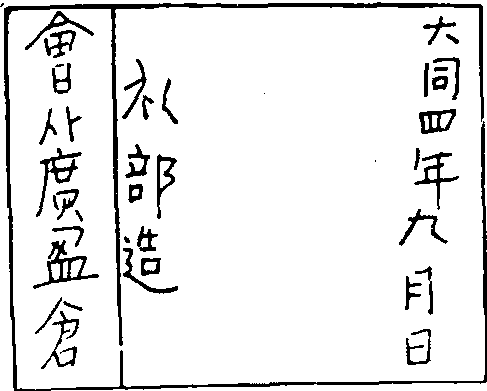 大同四年九月日
礼部造
會州廣盈倉